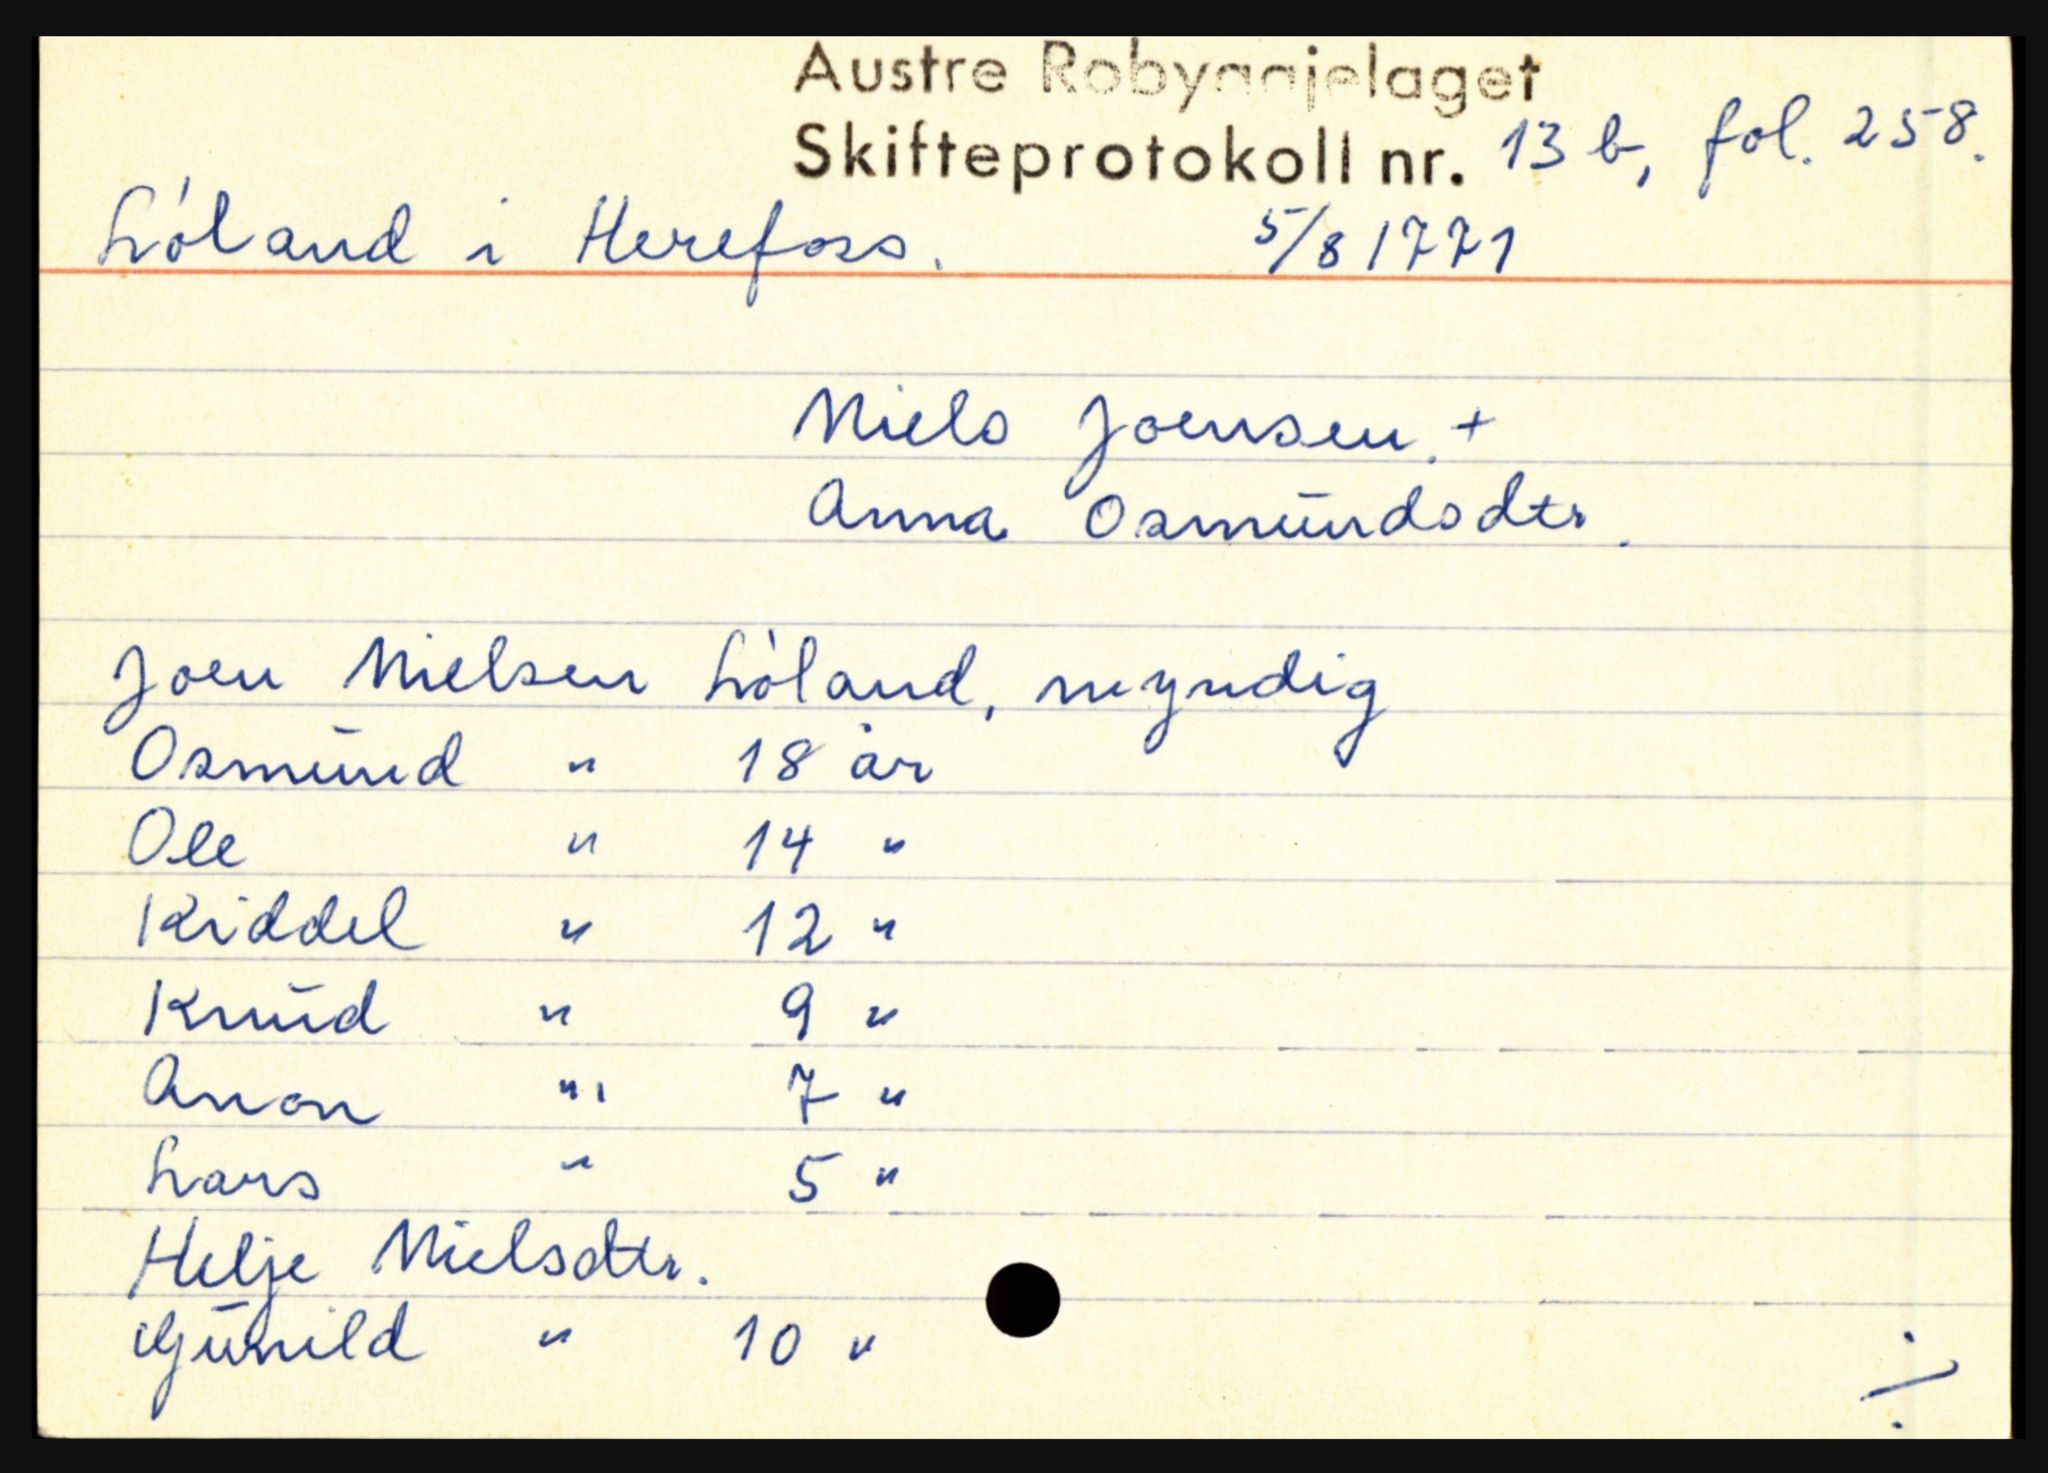 Austre Robyggjelaget
Skifteprotokoll nr. 13 b, fol. 258.
Lóland i Herefoss. 5/8 1771
Niels Joensen. +
Anna Osmundsdtr.
Joen Nielsen Lóland, myndig
Osmund " 18 år
Ole " 14 "
Kiddel " 12 "
Knud " 9 "
Anon " 7 "
Lars " 5 "
Helje Nielsdtr.
Gunild " 10 "
./.